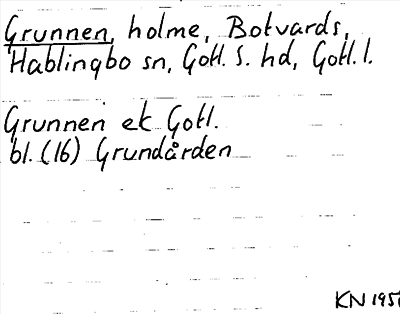 Grunnen, holme, Botvards,
Hablingbo sn, Gotl. S. hd, Gotl. l.
Grunnen ek Gotl.
bl. (16) Grundården
KN